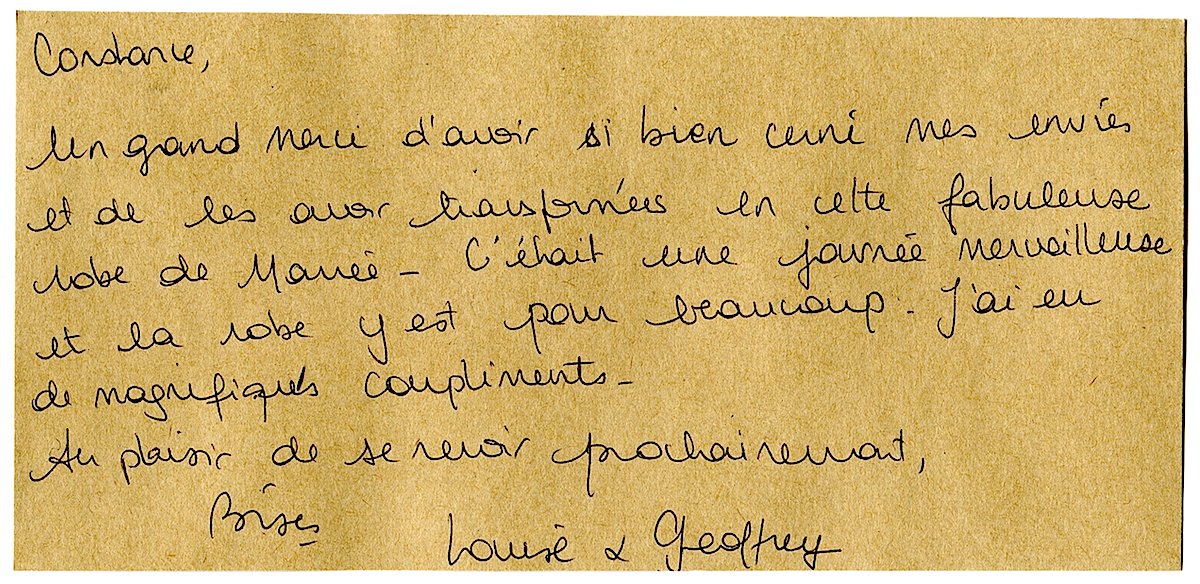 Constance,
Un grand merci d'avoir si bien cerné mes envies
et de les avoir transformées en cette fabuleuse
robe de Mariée - C'était une journée merveilleuse
et la robe y est pour beaucoup. J'ai eu
de magnifiques compliments -
Au plaisir de se revoir prochainement,
Bises
Louise & Geoffrey